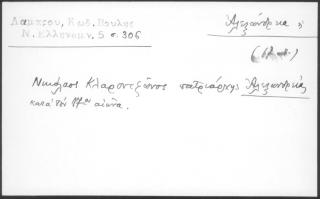 Λαμπρου, Κωδ. Βουλης
Ν. Ελληνομν. 5 σ. 306
Ἀλεξάνδρεια
Νικόλαος Κλαροντζᾶνος πατριάρχης Ἀλεξανδρείας
κατὰ τὸν 17ον αἰῶνα.